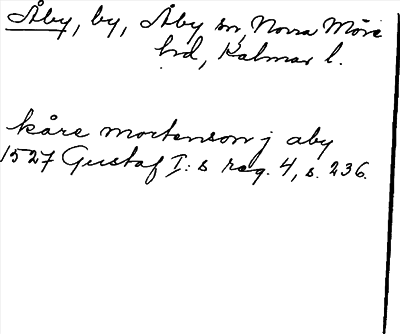 Åby, by, Åby sn, Norra Möre
hd, Kalmar l.
kåre mortenson j aby
1527 Gustaf I:s reg. 4, s. 236.